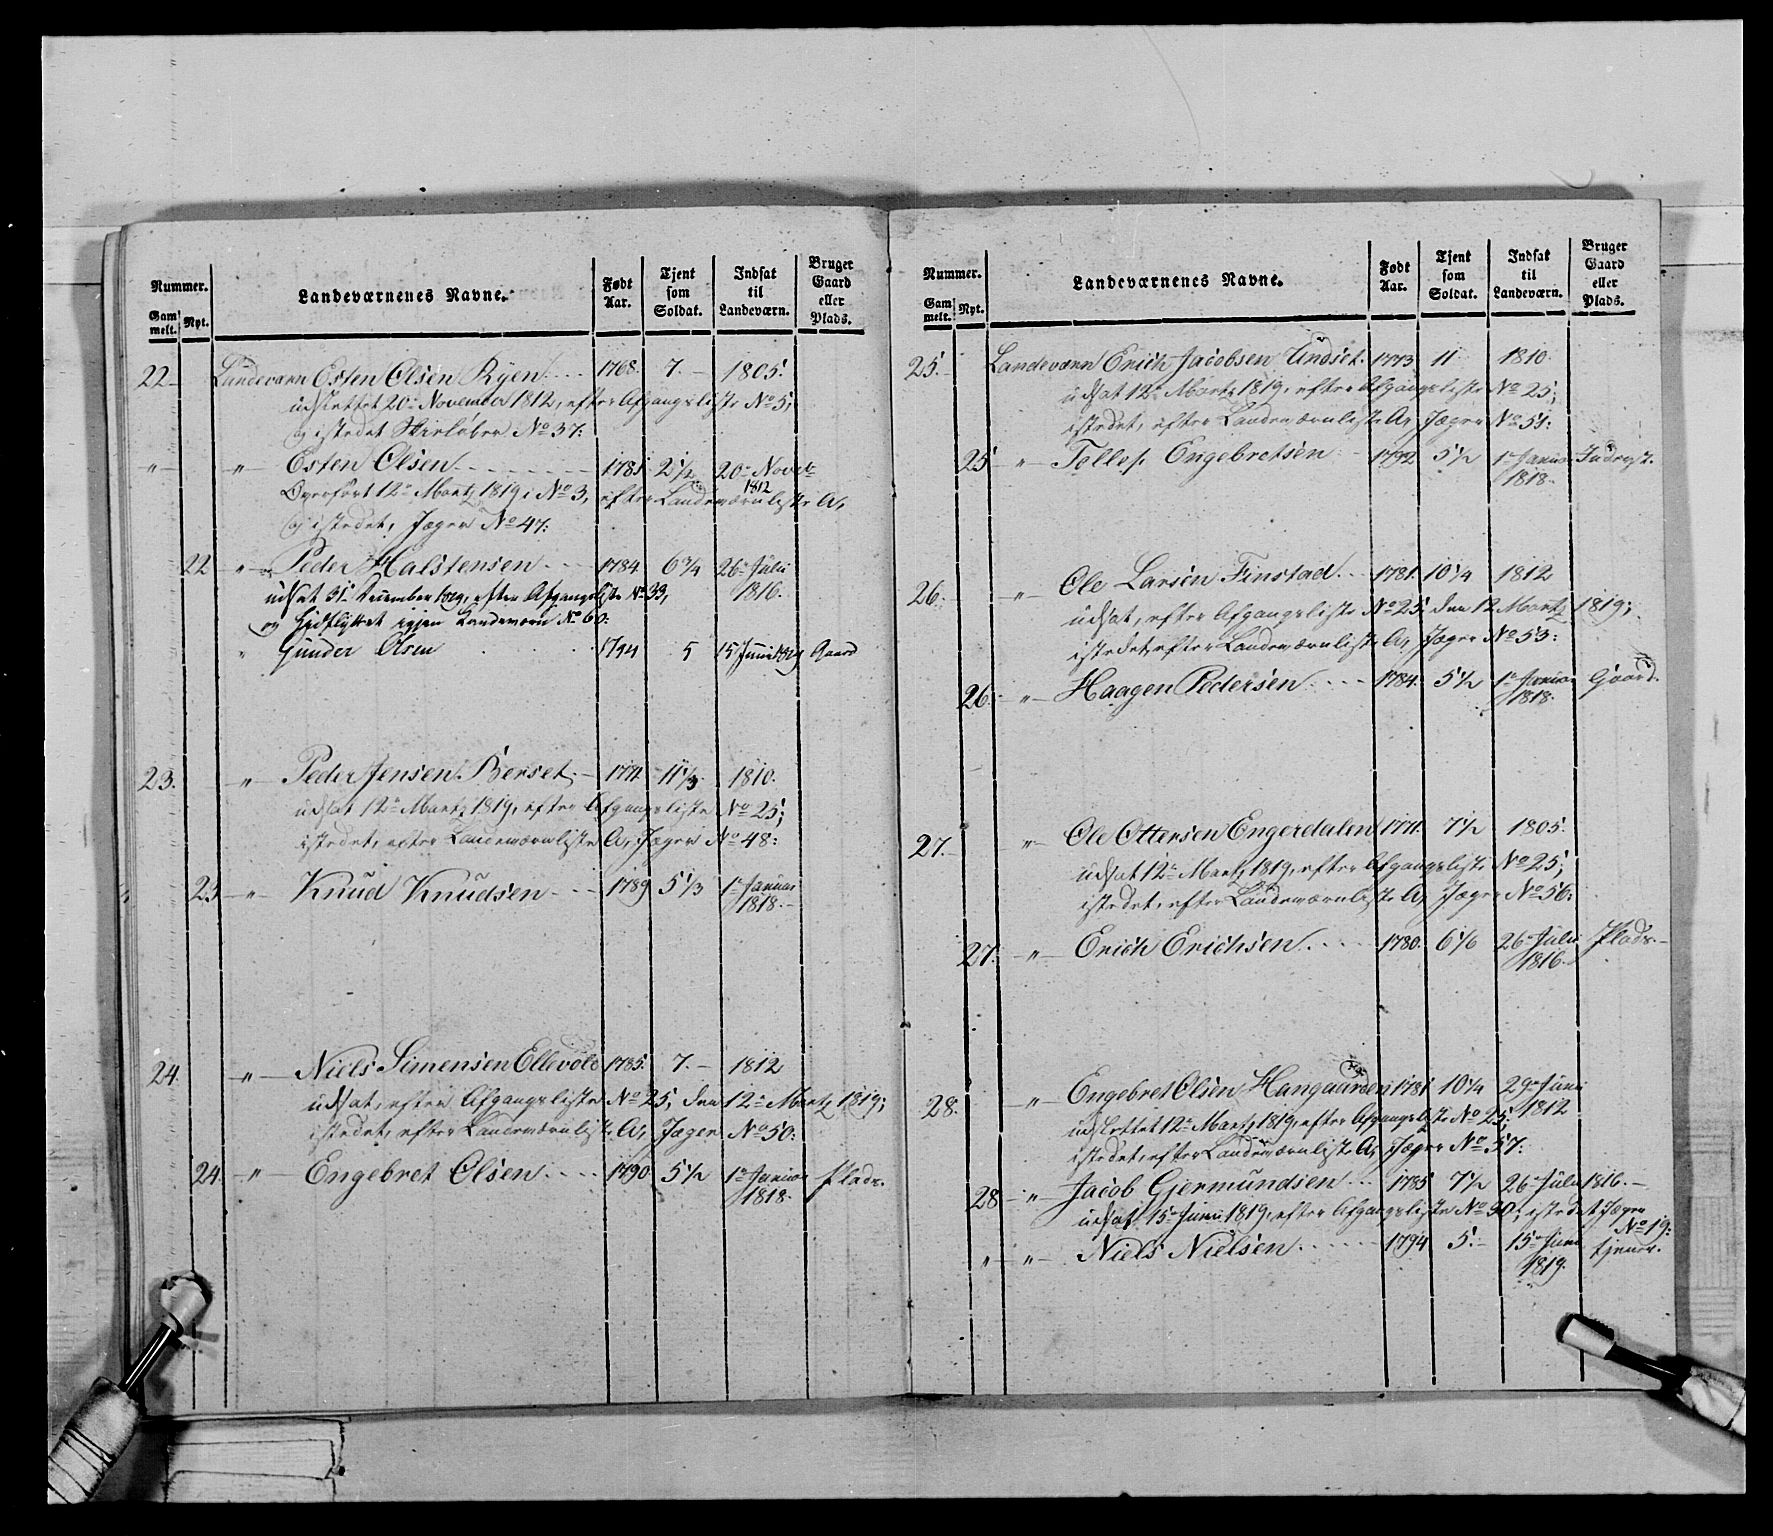 Nummer.
Gam melt.
Nyt.
Landeværnenes Navne.
Født Aar.
Tjent som Soldat.
Indsat til Landeværn.
Bruger Gaard eller Plads.
22 Landeværn Esten Olsen Ryen 1768. 7. 1805.
udslettet 20de November 1812, efter Afgangsliste No 5,
og istedet Skieløber No 37:
" " Esten Olsen 1781 2 1/2 20de Novbr 1812
Overført 12te Martz 1819 i No 3, efter Landeværnliste A,
og istedet, Jæger No 47:
22 " Peder Halstensen 1784 6 3/4 26de Julii 1816.
udsat 31te December 1819, efter Afgangsliste No 33,
og hidflyttet igjen Landeværn No 60:
" Gunder Olsen 1794 5 15 Junii 1819 Gaard
23. " Peder Jensen Berset 1771 11 1/3 1810.
udsat 12te Martz 1819, efter Afgangsliste No 25;
istedet, efter Landeværnliste A, Jæger No 48:
23 " Knud Knudsen 1789 5 1/3 1te Januar 1818.
24 " Niels Simensen Ellevold 1785. 7. 1812
udsat, efter Afgangsliste No 25, den 12te Martz 1819;
istedet, efter Landeværnliste A, Jæger No 50:
24 " Engebret Olsen 1790 5 1/2 1te Januar 1818. Plads.
Nummer.
Gam melt.
Nyt.
Landeværnenes Navne.
Født Aar.
Tjent som Soldat.
Indsat til Landeværn.
Bruger Gaard eller Plads.
25. Landeværn Erich Jacobsen Undset 1773 11 1810.
udsat 12te Martz 1819, efter Afgangsliste No 25;
istedet, efter Landeværnliste A, Jæger No 51:
25 " Tollef Engebretsen 1792 5 1/2 1te Januar 1818. Inderst.
26. " Ole Larsen Finstad 1781. 10 1/4 1812
udsat, efter Afgangsliste No 25. den 12 Martz 1819;
istedet, efter Landeværnliste A, Jæger No 53:
26. " Haagen Pedersen 1784. 5 1/2 1te Januar 1818. Gaard.
27. " Ole Ottersen Engerdalen 1771. 7 1/2 1805.
udsat 12te Martz 1819, efter Afgangsliste No 25;
istedet, efter Landeværnliste A, Jæger No 56:
27. " Erich Erichsen 1780. 6 1/6 26de Julii 1816. Plads.
28. " Engebret Olsen Hangaarden 1781 10 1/4 29de Junii 1812
udslettet 12te Martz 1819, efter Afgangsliste No 25,
istedet, efter Landeværnliste A, Jæger No 57:
28 " Jacob Gjermundsen 1785 7 1/2 26de Julii 1816.
udsat 15de Junii 1819, efter Afgangsliste No 30; istedet Jæger No 19:
" " Niels Nielsen 1794 5. 15de Junii 1819. tjener.